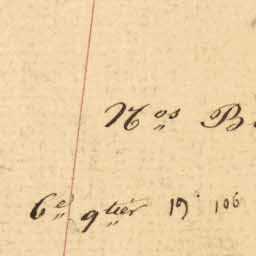 Nos B
6e qtier 19 106